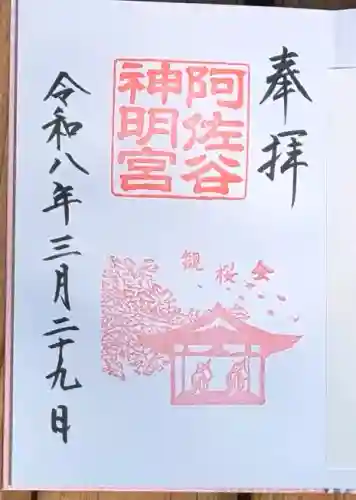 奉拝
阿佐谷
神明宮
観桜会
令和八年三月二十九日